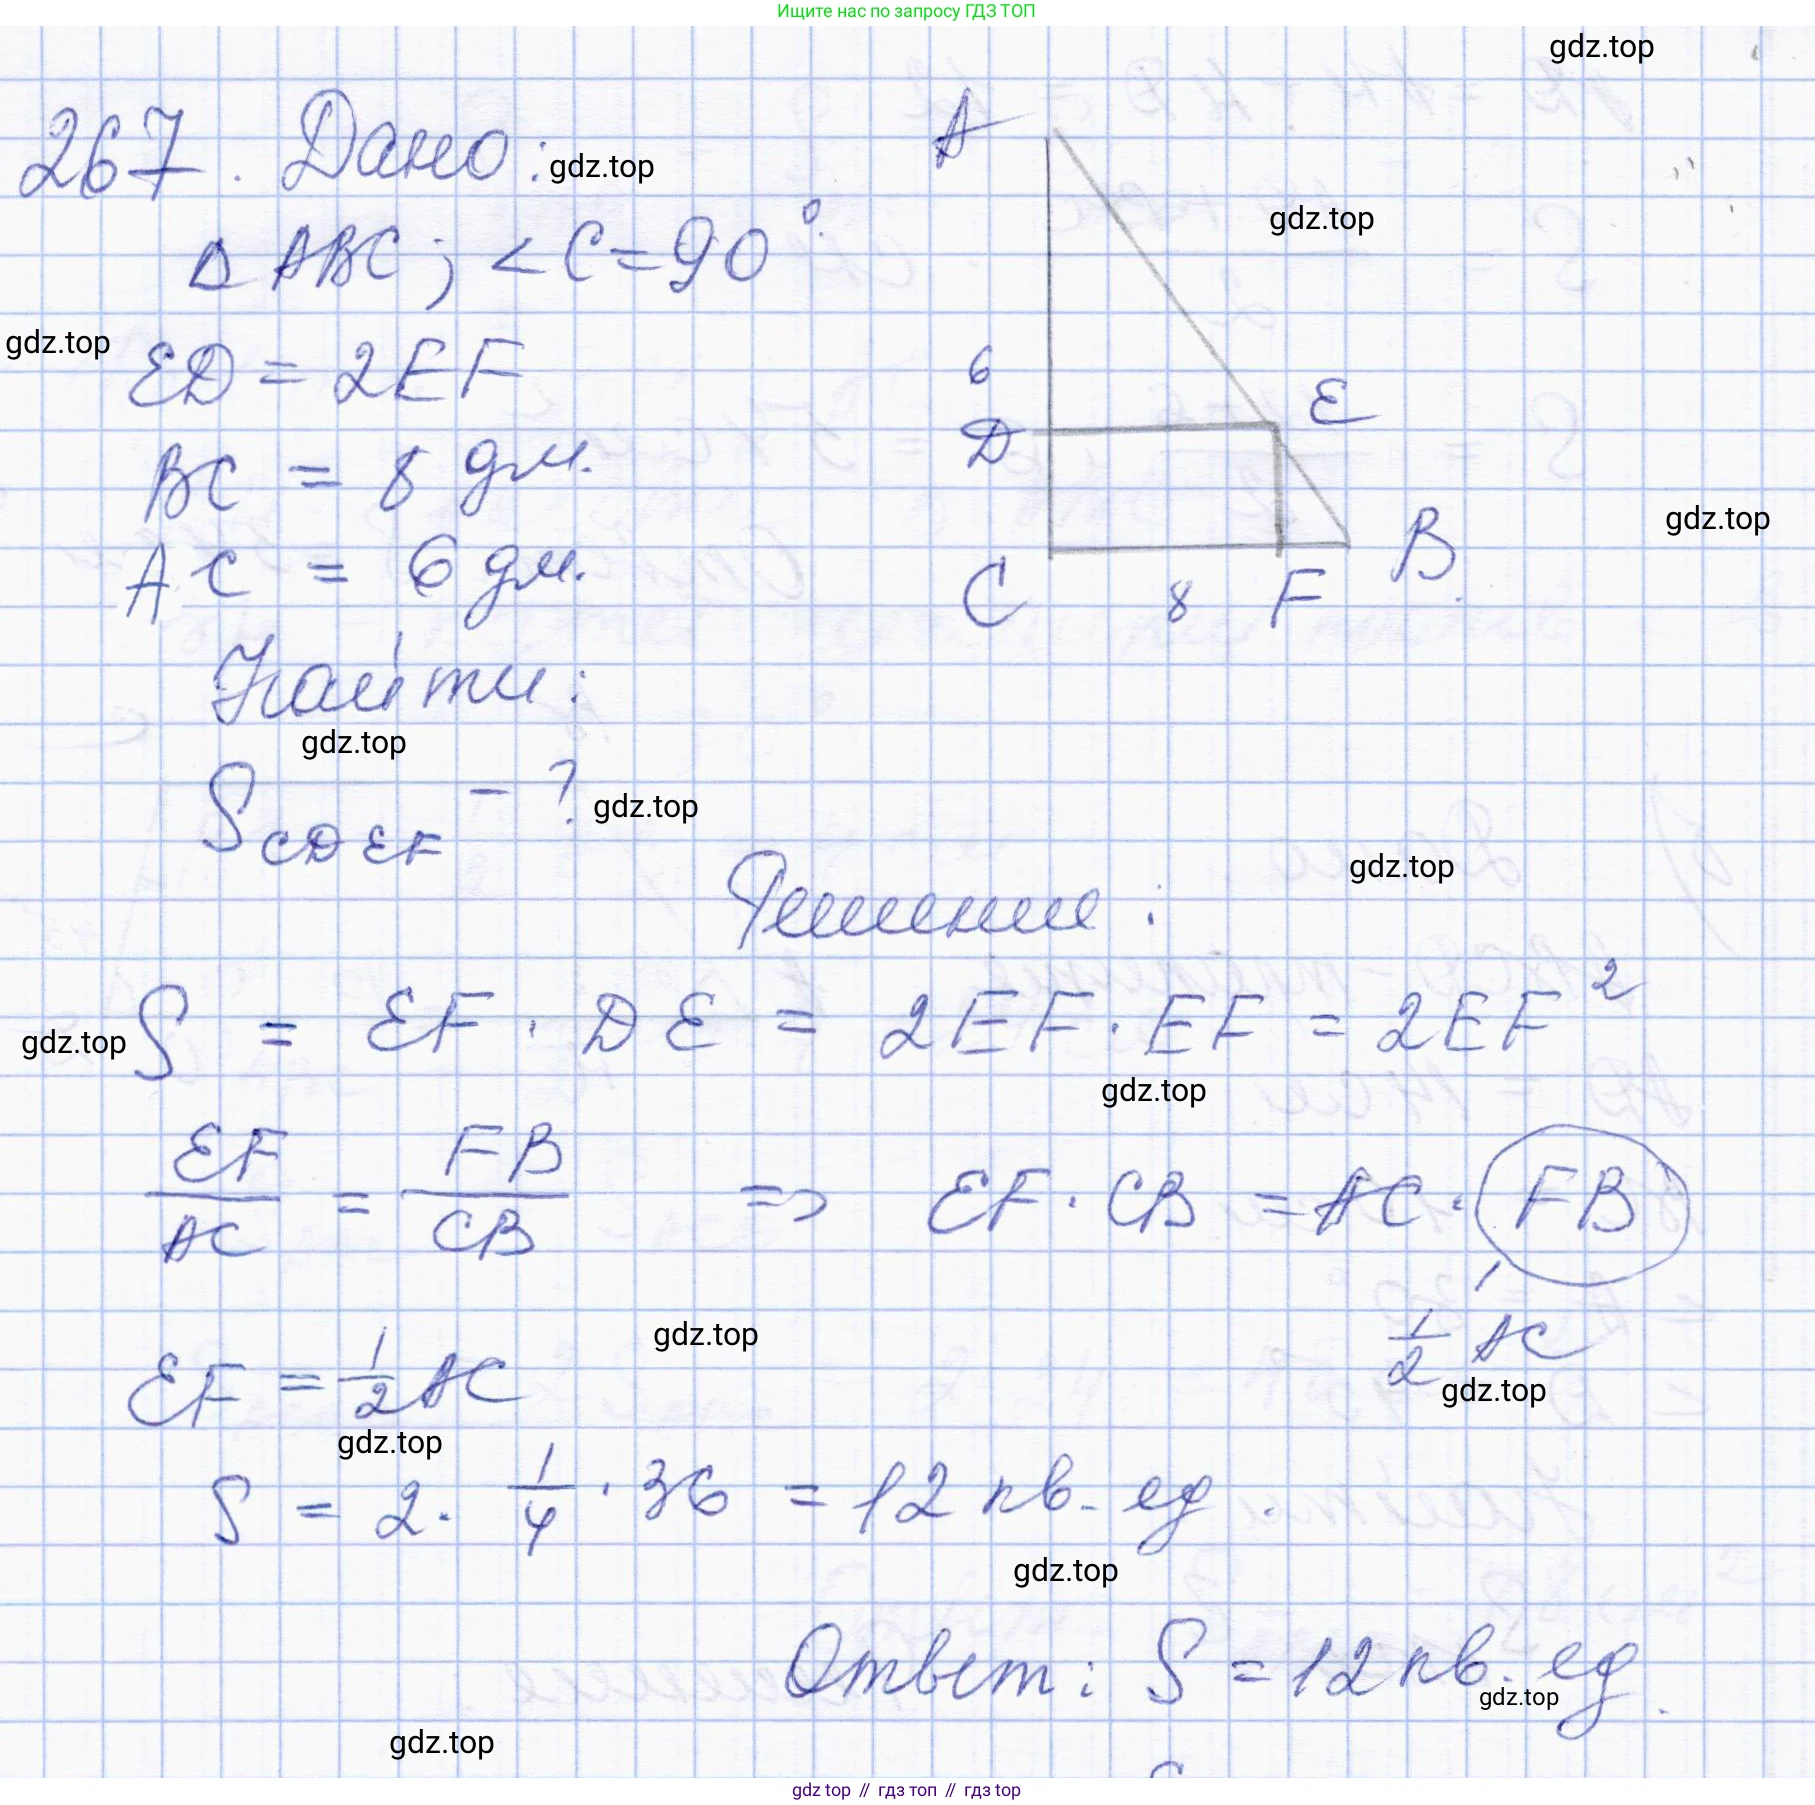 Ищите нас по запросу ГДЗ ТОП
gdz.top
267. Дано:
gdz.top
A
gdz.top
Δ ABC; < C = 90°.
gdz.top
ED = 2EF
6
E
D
BC = 8 дм.
gdz.top
B
AC = 6 дм.
C
8
F
Найти:
gdz.top
S CDEF - ?
gdz.top
gdz.top
Решение:
S = EF · DE = 2EF · EF = 2EF²
gdz.top
gdz.top
EF/AC = FB/CB => EF · CB = AC · FB
gdz.top
1/2 AC
EF = 1/2 AC
gdz.top
gdz.top
S = 2 · 1/4 · 36 = 12 кв. ед.
gdz.top
Ответ: S = 12 кв. ед.
gdz.top
gdz.top
gdz top // гдз топ // гдз top